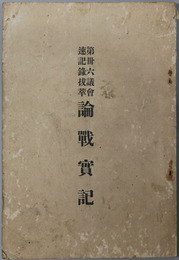 第卅六議會
速記錄拔萃
論戰實記